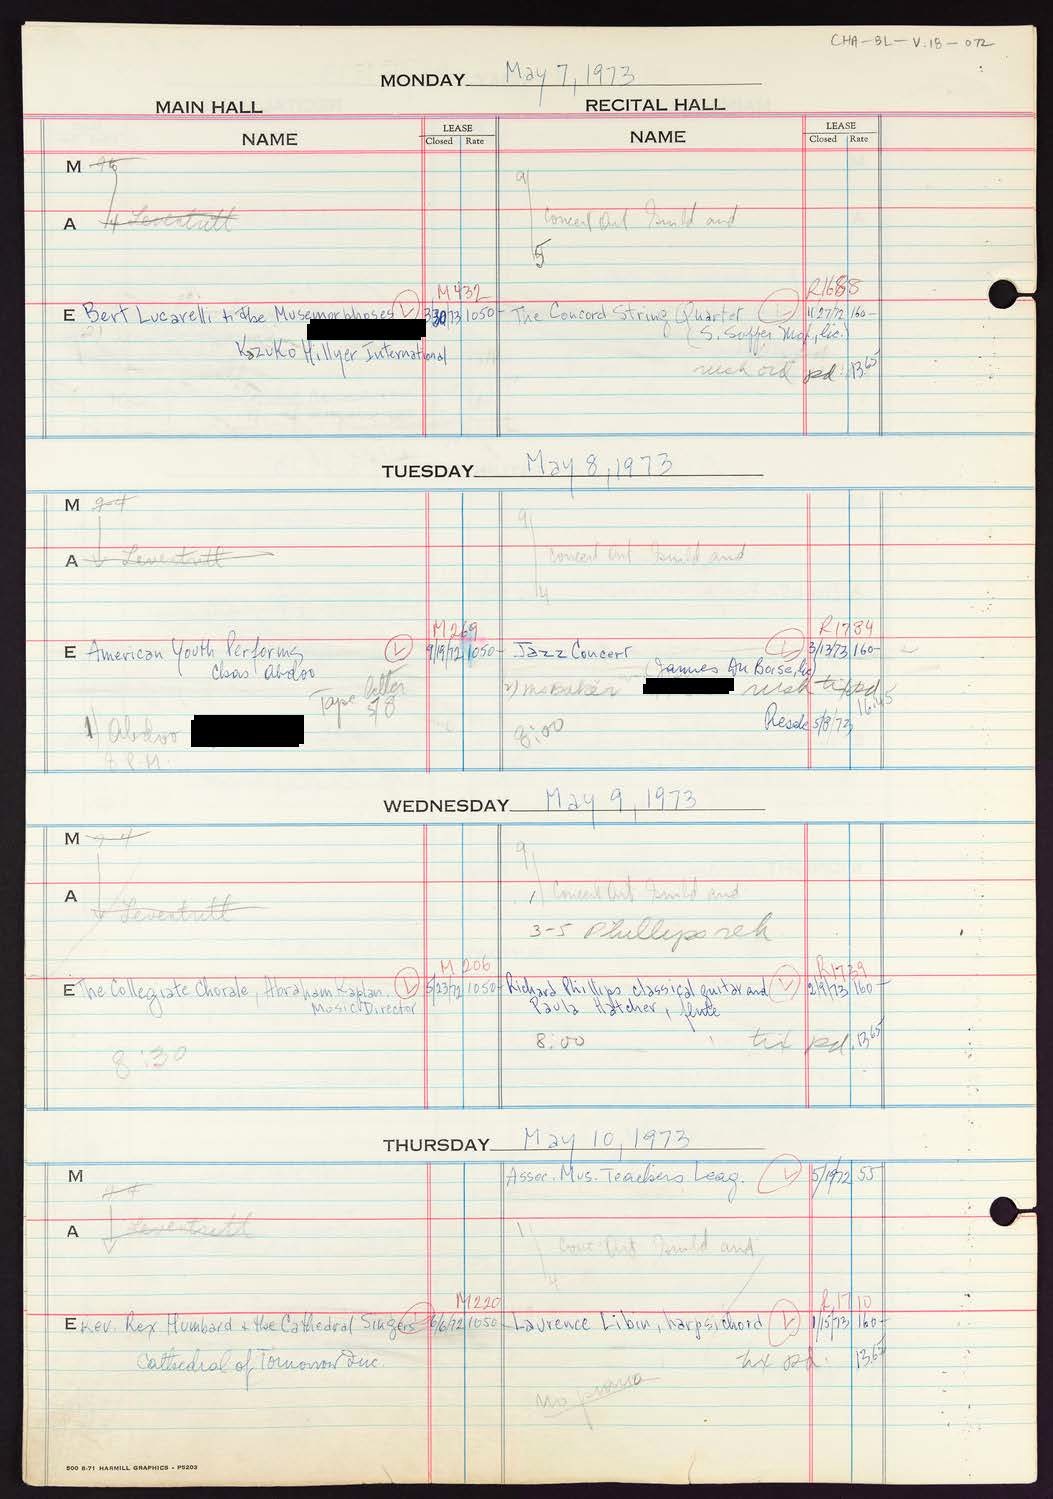 CHA-BL-V.18-072
MONDAY May 7, 1973
MAIN HALL
RECITAL HALL
NAME
LEASE
Closed Rate
NAME
LEASE
Closed Rate
M
9
A
4 Leventritt
Concert Art Guild aud
5
M432
R1688
E Bert Lucarelli & the Musemorphoses L 3/30/73 1050-
The Concord String Quartet L 11/27/72 160-
(S. Soffer Mgt, Inc.)
Kazuko Hillyer International
pd. 13.65
TUESDAY May 8, 1973
M 9-4
9
A Leventritt
Concert Art Guild aud
4
M269
R1784
E American Youth Performs L 9/19/72 1050-
Jazz Concert L 3/13/73 160-
Chas Abdoo
(James Du Boise,
Tape letter
5/8
2) McBaker
tix pd
16.45
1) Abdoo
Resale 5/8/73
8 P.M.
8:00
WEDNESDAY May 9, 1973
M 9-4
9
A
1 Concert Art Guild aud
Leventritt
3-5 Phillips reh
M206
R1739
E The Collegiate Chorale, Abraham Kaplan L 5/23/72 1050-
Richard Phillips classical guitar and L 2/9/73 160-
Music Director
Paula Hatcher, flute
8:30
8:00
tix pd. 13.65
THURSDAY May 10, 1973
M
Assoc. Mus. Teachers Leag. L 5/19/72 55
9-4
A Leventritt
1
Conc Art Guild aud
4
M220
R1710
E Rev. Rex Humbard & the Cathedral Singers 6/6/72 1050-
Laurence Libin, harpsichord L 1/15/73 160-
Cathedral of Tomorrow Inc.
tix pd. 13.65
no piano
500 8-71 HARMILL GRAPHICS - P5203